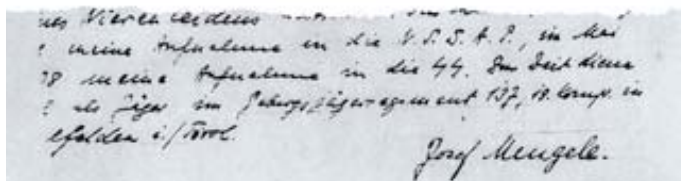 nes Nierenleidens
meine Aufnahme in die N.S.D.A.P., im Mai
38 meine Aufnahme in die SS. Zur Zeit diene
als Jäger im Gebirgsjägerregiment 137, 19. Komp. in
elfelden i./Tirol.
Josef Mengele.